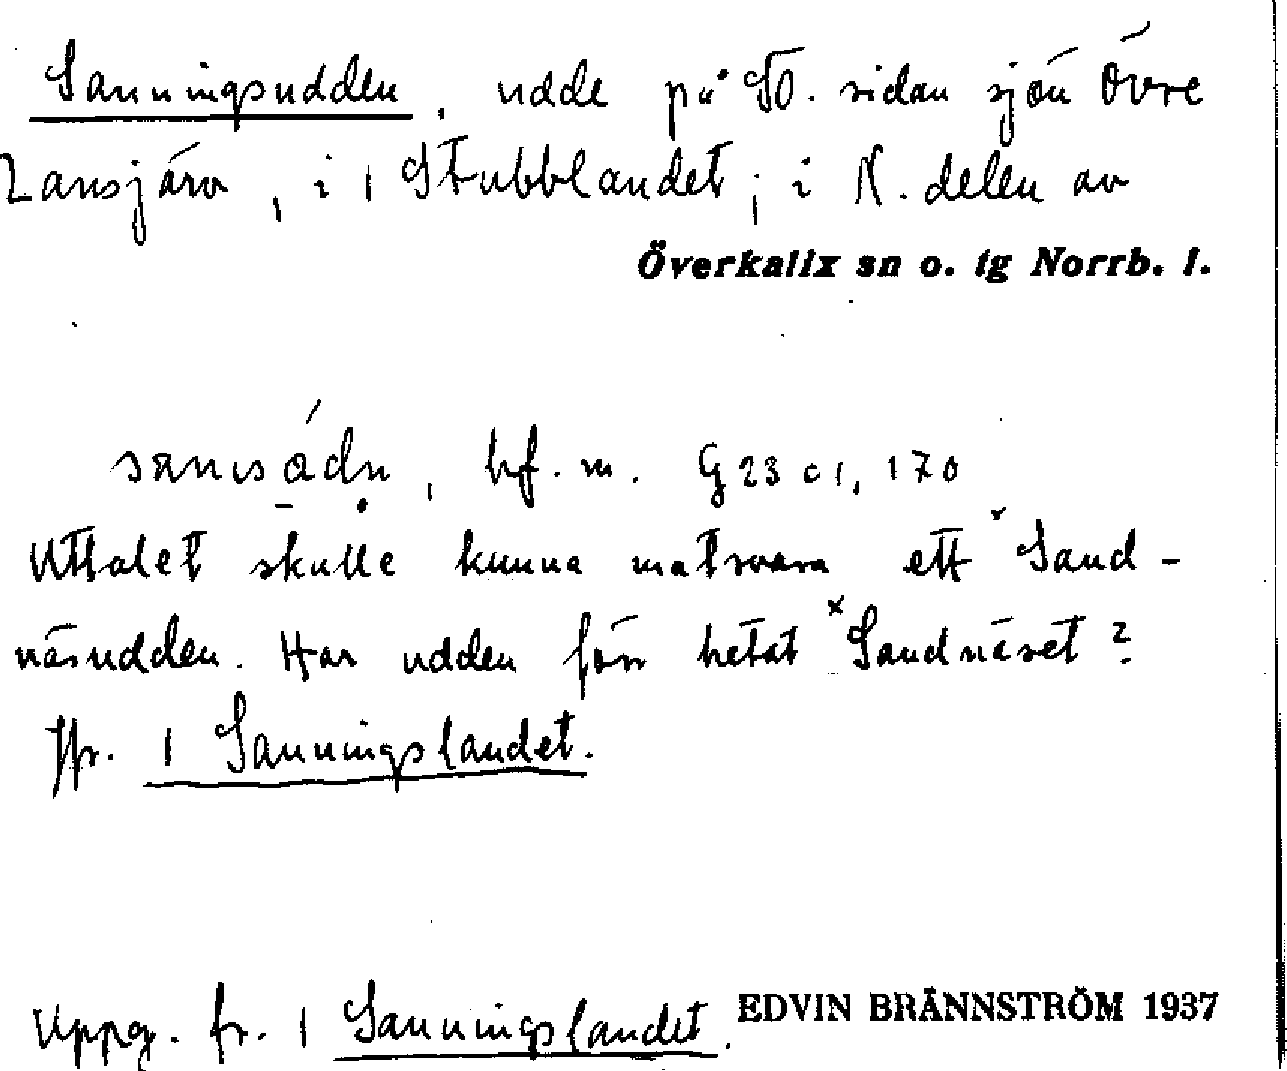 Sanningsudden, udde på SO. sidan sjön Övre
Lansjärv, i 1 Stubblandet; i N. delen av
Överkalix sn o. tg Norrb. l.
bf. m. G 23 c 1, 170
Uttalet skulle kunna motsvara ett ˣSand-
näsudden. Har udden förr hetat ˣSandnäset?
Jfr. 1 Sanningslandet.
Uppg. fr. 1 Sanningslandet.
EDVIN BRÄNNSTRÖM 1937